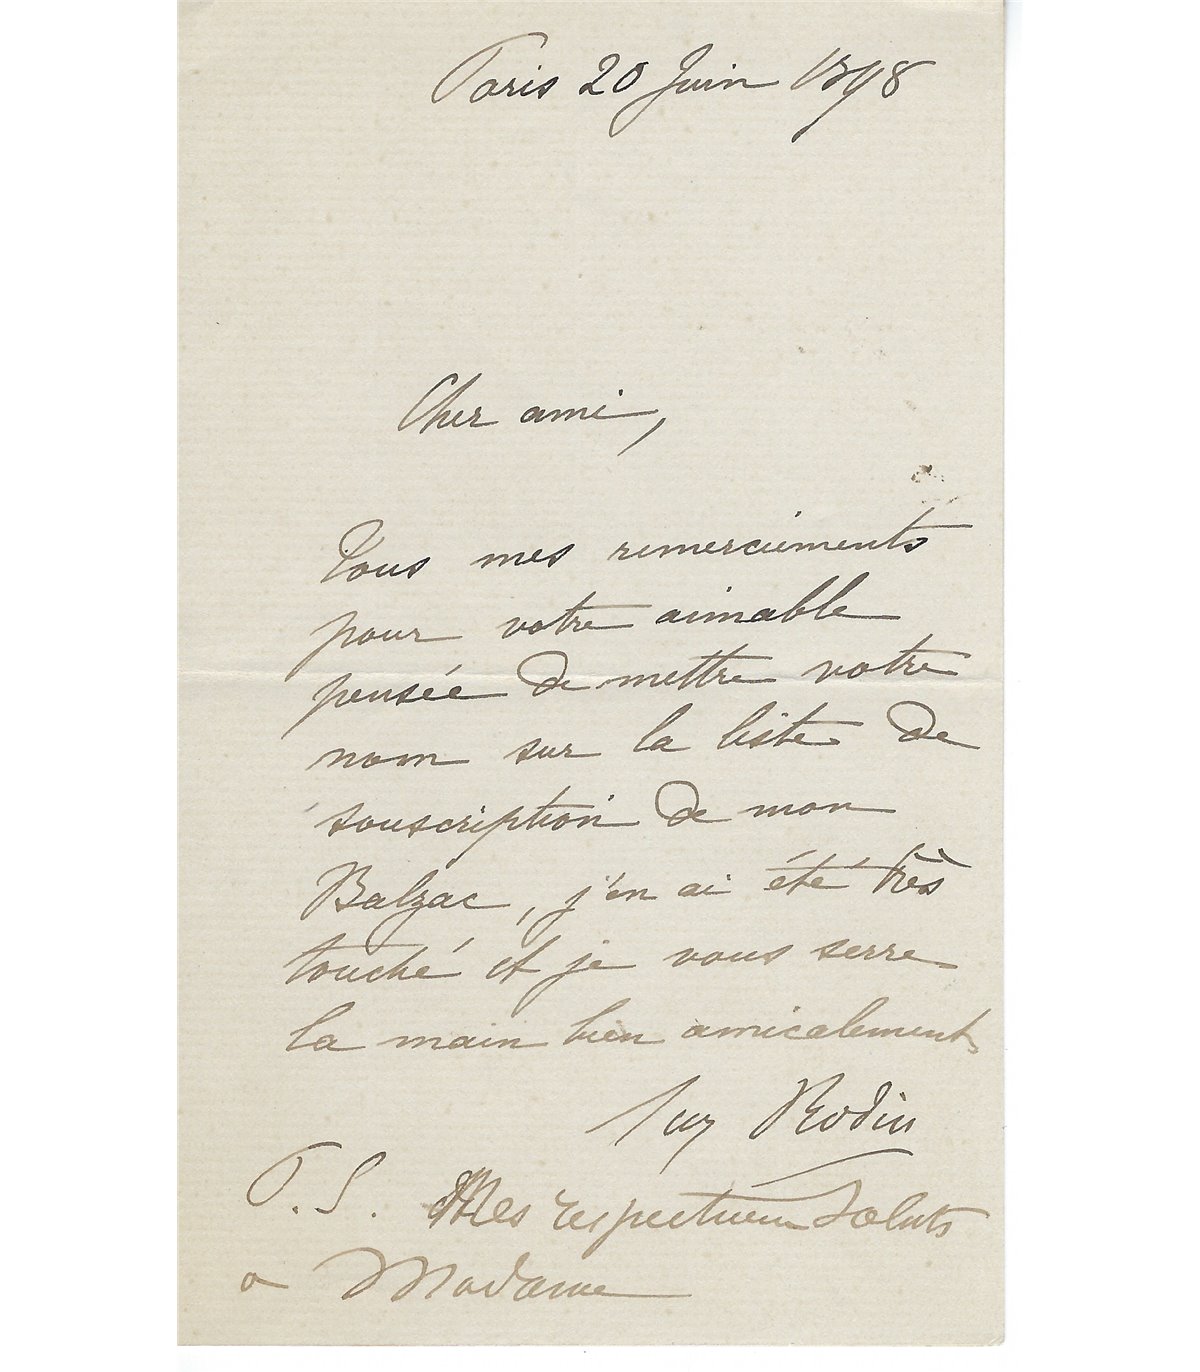 Paris 20 Juin 1898
Cher ami,
Tous mes remerciements
pour votre aimable
pensée de mettre votre
nom sur la liste de
souscription de mon
Balzac, j'en ai été très
touché et je vous serre
la main bien amicalement
Aug Rodin
P. S. Mes respectueux Saluts
a Madame